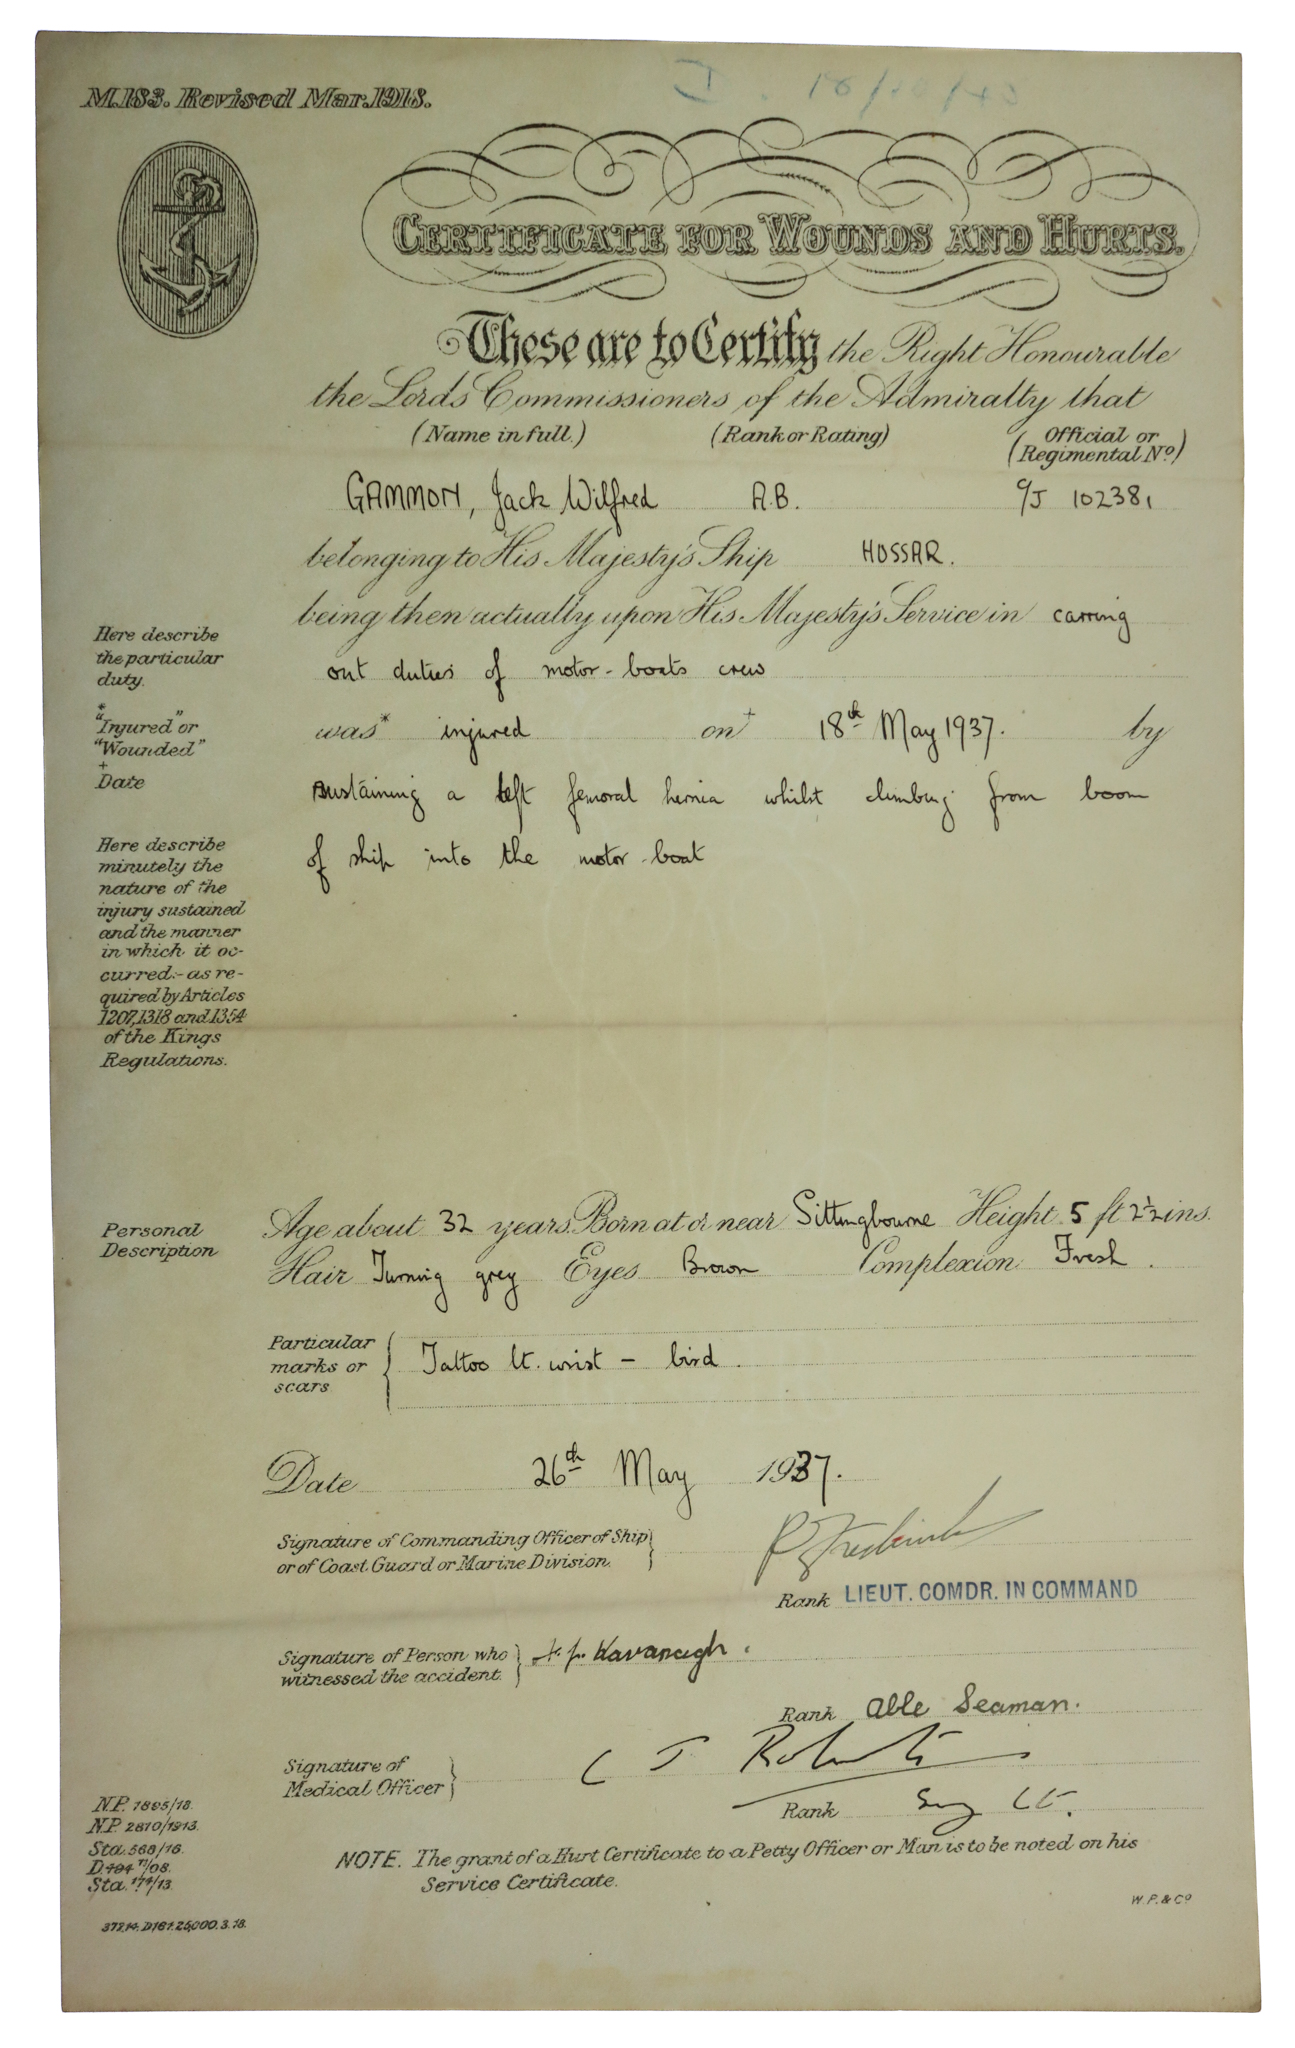 M.183. Revised Mar.1918.
CERTIFICATE FOR WOUNDS AND HURTS.
These are to Certify the Right Honourable
the Lords Commissioners of the Admiralty that
(Name in full.) (Rank or Rating) (Official or Regimental Nº)
GAMMON, Jack Wilfred A.B. C/J 102381
belonging to His Majesty's Ship HUSSAR.
being then actually upon His Majesty's Service in carring
Here describe
the particular
duty.
out duties of motor-boats crew
*
"Injured" or
"Wounded"
+
Date
was* injured on+ 18th May 1937. by
sustaining a left femoral hernia whilst climbing from boom
of ship into the motor-boat
Here describe
minutely the
nature of the
injury sustained
and the manner
in which it oc-
curred:-as re-
quired by Articles
1207,1318 and 1354
of the Kings
Regulations.
Personal
Description
Age about 32 years. Born at or near Sittingbourne Height 5 ft 2½ ins.
Hair Turning grey Eyes Brown Complexion Fresh.
Particular
marks or
scars
Tattoo lt. wrist - bird.
Date 26th May 1937.
Signature of Commanding Officer of Ship
or of Coast Guard or Marine Division.
Rank LIEUT. COMDR. IN COMMAND
Signature of Person who
witnessed the accident.
Kavanagh.
Rank Able Seaman.
Signature of
Medical Officer
C J Roberts
Rank Surg Lt.
N.P. 1895/18.
N.P. 2810/1913.
Sta. 568/16.
Sta. 174/13
NOTE. The grant of a Hurt Certificate to a Petty Officer or Man is to be noted on his
Service Certificate.
W.P.& Cº
37214. D161. 25,000. 3. 18.